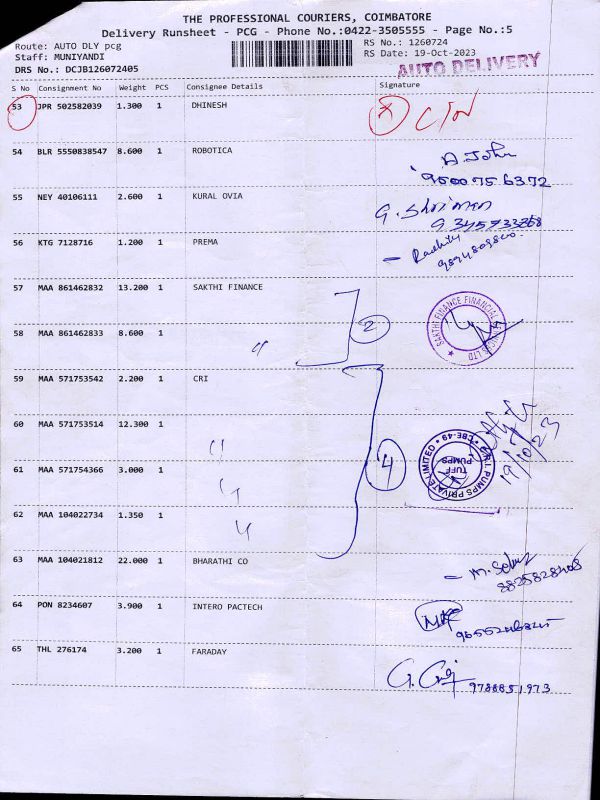 THE PROFESSIONAL COURIERS, COIMBATORE
Delivery Runsheet - PCG - Phone No.:0422-3505555 - Page No.:5
Route: AUTO DLY pcg
RS No.: 1260724
Staff: MUNIYANDI
RS Date: 19-Oct-2023
DRS No.: DCJB126072405
AUTO DELIVERY
S No Consignment No Weight PCS Consignee Details Signature
53 JPR 502582039 1.300 1 DHINESH
54 BLR 5550838547 8.600 1 ROBOTICA A. John
9500756372
55 NEY 40106111 2.600 1 KURAL OVIA
56 KTG 7128716 1.200 1 PREMA
57 MAA 861462832 13.200 1 SAKTHI FINANCE
2
SAKTHI FINANCE FINANCIAL LTD
58 MAA 861462833 8.600 1 "
59 MAA 571753542 2.200 1 CRI
60 MAA 571753514 12.300 1 "
4
C.R.I. PUMPS PRIVATE LIMITED CBE-49
TUFF PUMPS
19/10/23
61 MAA 571754366 3.000 1 "
62 MAA 104022734 1.350 1 "
63 MAA 104021812 22.000 1 BHARATHI CO
64 PON 8234607 3.900 1 INTERO PACTECH
65 THL 276174 3.200 1 FARADAY
9788851973